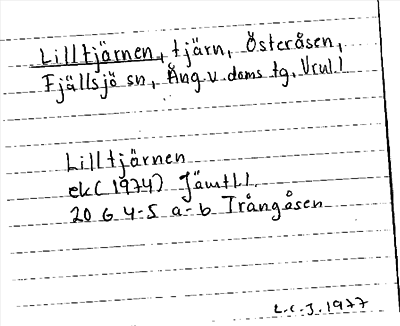 Lilltjärnen, tjärn, Österåsen,
Fjällsjö sn, Ång. v. doms tg,
Lilltjärnen
ek (1974) Jämtl l.
20 G 4-5 a-b Trångåsen
L.C.J. 1977